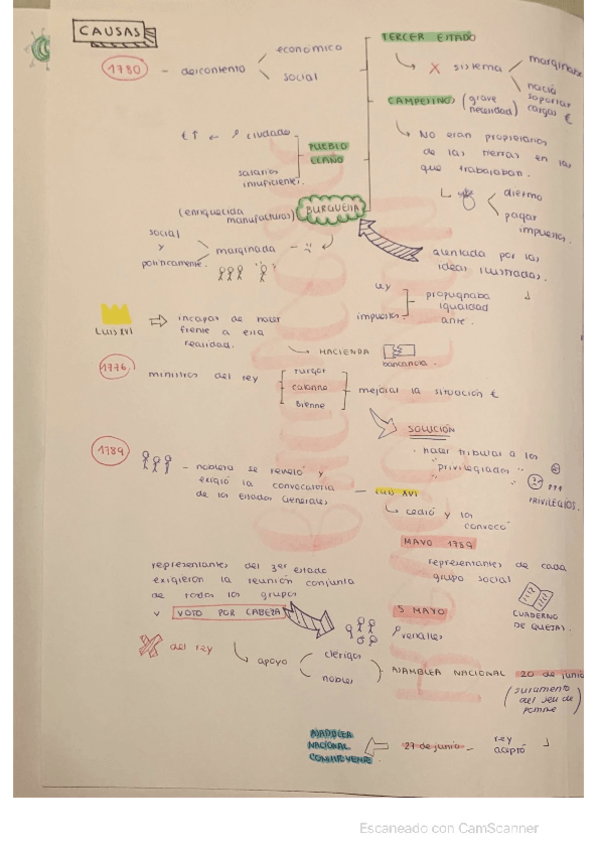 CAUSAS
TERCER ESTADO
económico
1780 - descontento
social
X sistema
marginaba
hacía
soportar
cargas €
CAMPESINOS (grave
necesidad)
No eran propietarios
de las tierras en las
que trabajaban.
diezmo
pagar
impuestos.
€ ↑ ← ciudades
salarios
insuficientes.
PUEBLO
LLANO
(enriquecida
manufacturas)
BURGUESÍA
social
y
políticamente.
marginada
alentada por las
ideas ilustradas.
ley
impuestos
propugnaba
igualdad
ante.
Luis XVI
incapaz de hacer
frente a esta
realidad.
HACIENDA
bancarrota.
1776
ministros del rey
Turgot
Calonne
Brienne
mejorar la situación €
SOLUCIÓN
· hacer tributar a los
"privilegiados"
PRIVILEGIOS.
1789
- nobleza se reveló y
exigió la convocatoria
de los Estados Generales
- Luis XVI
cedió y los
convocó
MAYO 1789
representantes de cada
grupo social
CUADERNO
DE QUEJAS.
representantes del 3er estado
exigieron la reunión conjunta
de todos los grupos
y VOTO POR CABEZA
5 MAYO
Versalles
X del rey
apoyo
clérigos
nobles
ASAMBLEA NACIONAL 20 de junio
(juramento
del Jeu de
Pomme)
ASAMBLEA
NACIONAL
CONSTITUYENTE.
27 de junio - rey
aceptó
Escaneado con CamScanner